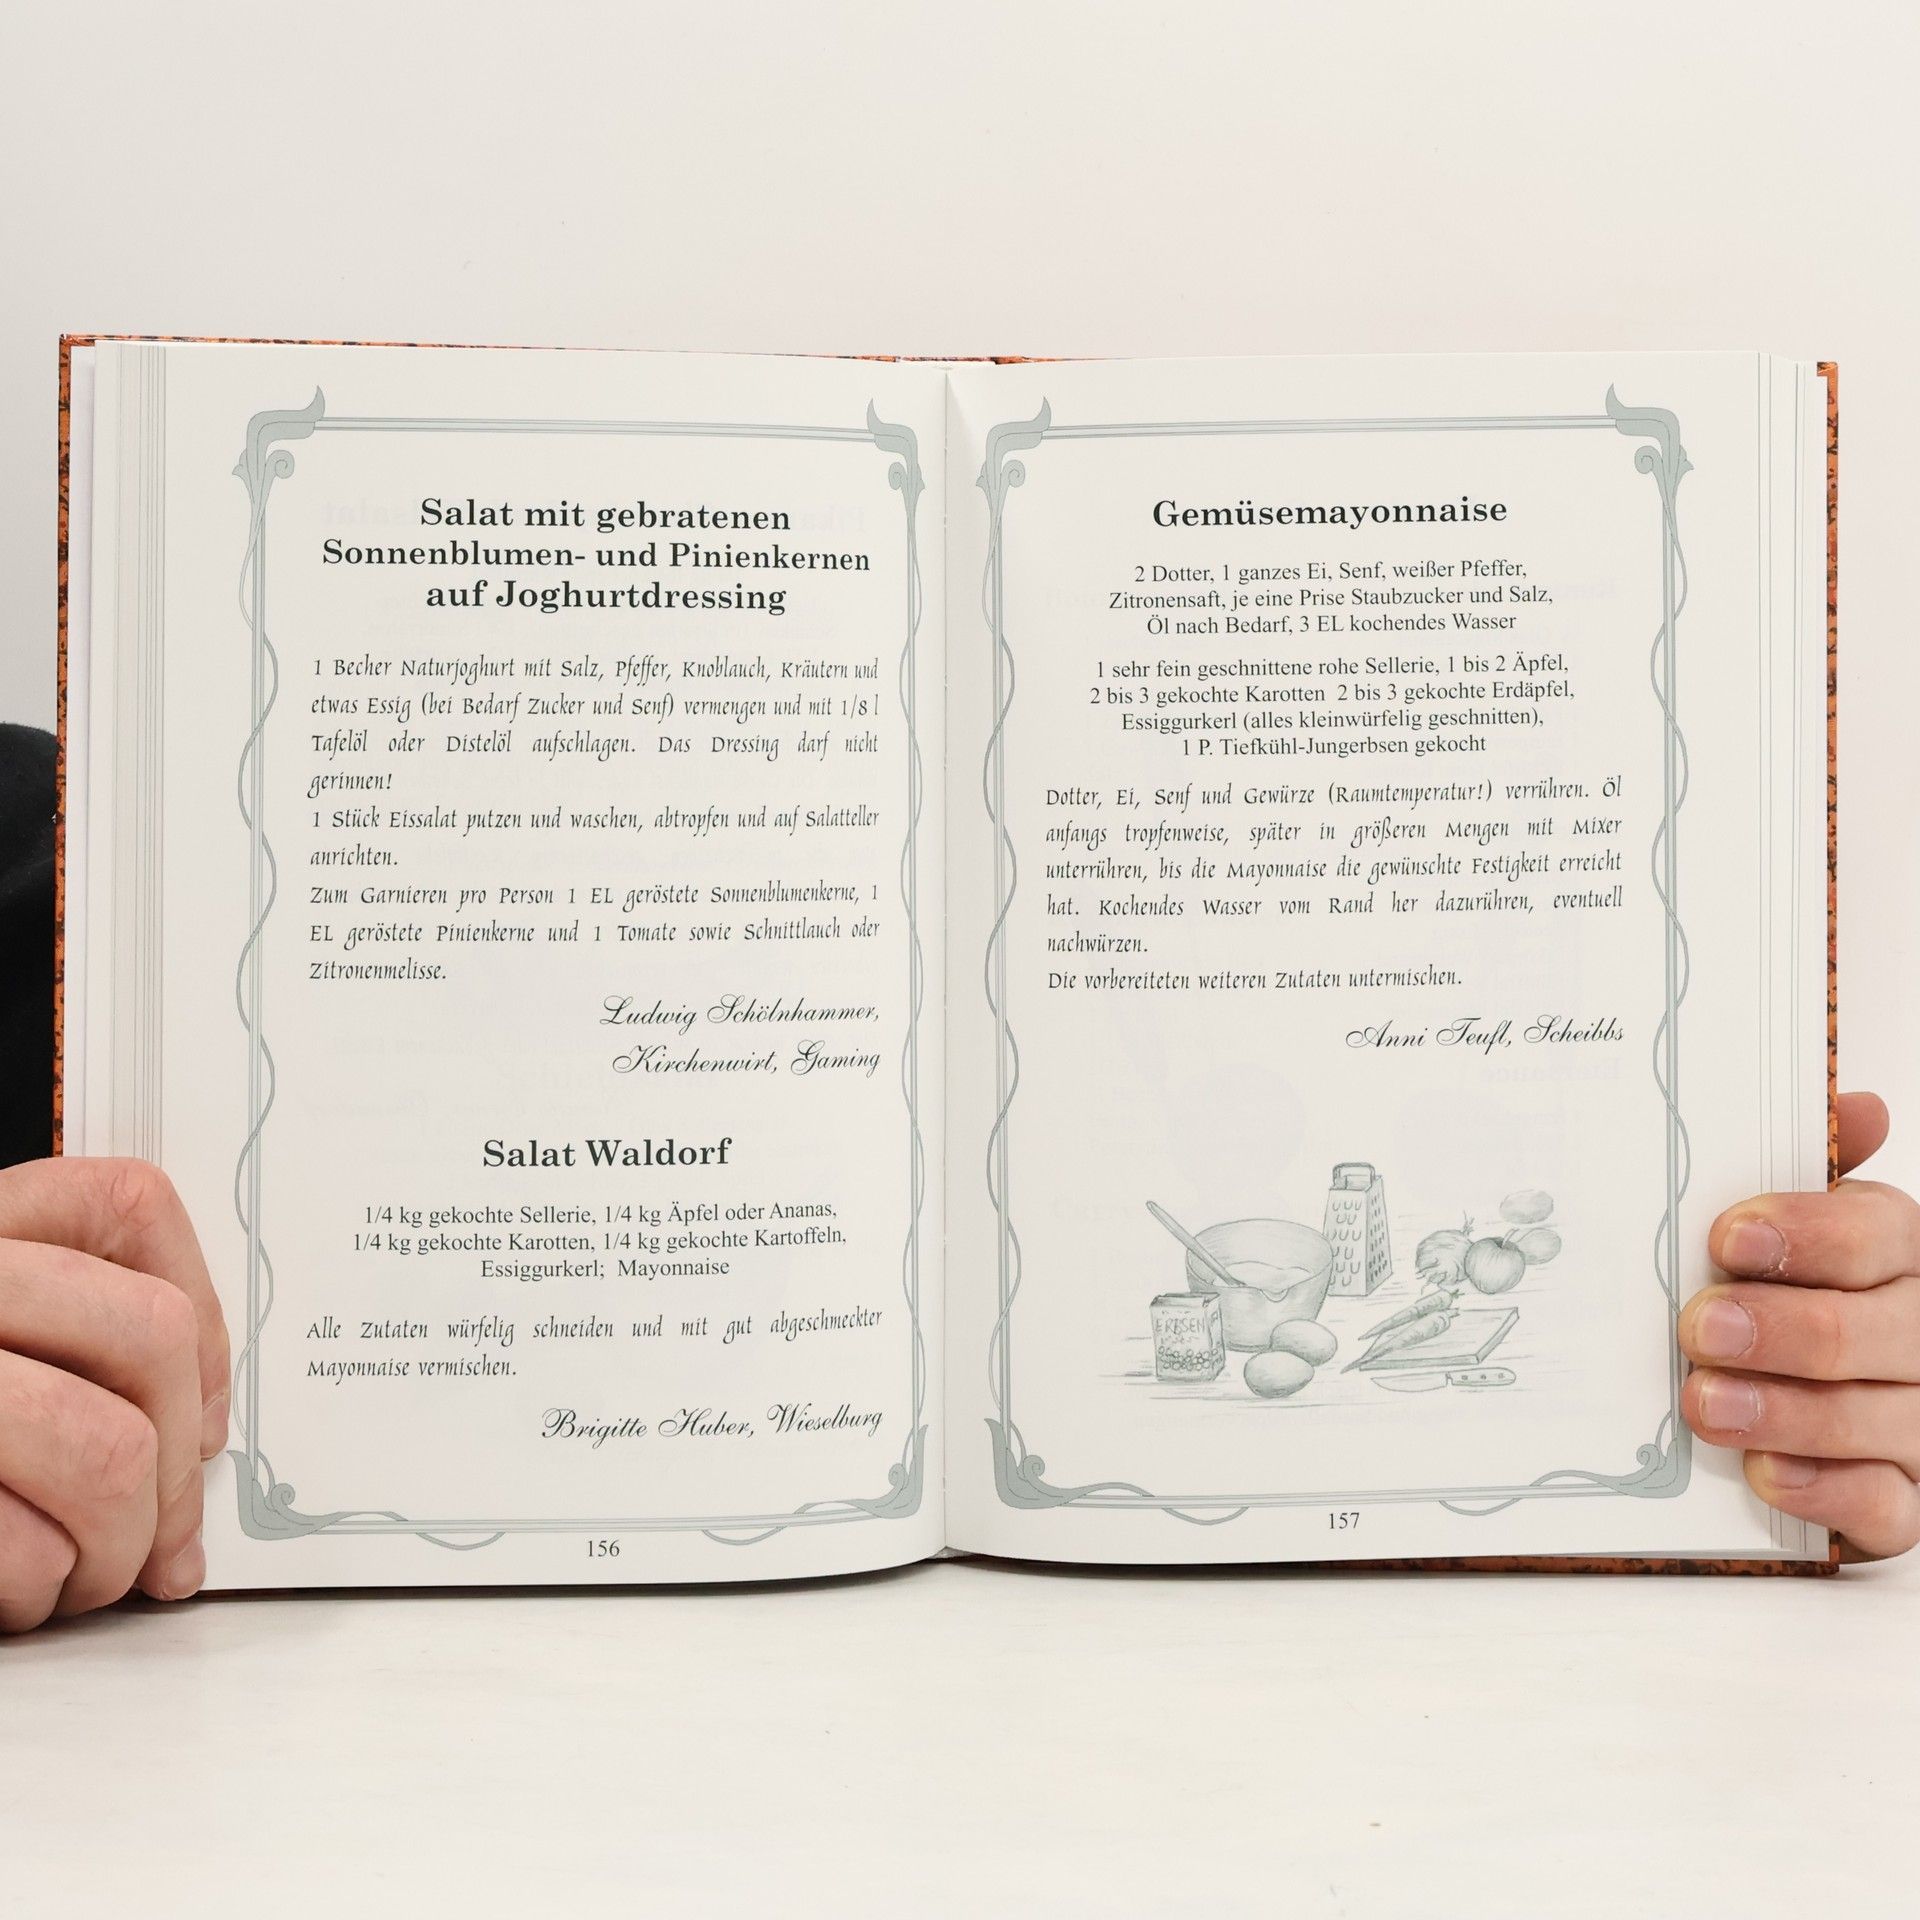 Salat mit gebratenen
Sonnenblumen- und Pinienkernen
auf Joghurtdressing
1 Becher Naturjoghurt mit Salz, Pfeffer, Knoblauch, Kräutern und
etwas Essig (bei Bedarf Zucker und Senf) vermengen und mit 1/8 l
Tafelöl oder Distelöl aufschlagen. Das Dressing darf nicht
gerinnen!
1 Stück Eissalat putzen und waschen, abtropfen und auf Salatteller
anrichten.
Zum Garnieren pro Person 1 EL geröstete Sonnenblumenkerne, 1
EL geröstete Pinienkerne und 1 Tomate sowie Schnittlauch oder
Zitronenmelisse.
Ludwig Schölnhammer,
Kirchenwirt, Gaming
Salat Waldorf
1/4 kg gekochte Sellerie, 1/4 kg Äpfel oder Ananas,
1/4 kg gekochte Karotten, 1/4 kg gekochte Kartoffeln,
Essiggurkerl; Mayonnaise
Alle Zutaten würfelig schneiden und mit gut abgeschmeckter
Mayonnaise vermischen.
Brigitte Huber, Wieselburg
156
Gemüsemayonnaise
2 Dotter, 1 ganzes Ei, Senf, weißer Pfeffer,
Zitronensaft, je eine Prise Staubzucker und Salz,
Öl nach Bedarf, 3 EL kochendes Wasser
1 sehr fein geschnittene rohe Sellerie, 1 bis 2 Äpfel,
2 bis 3 gekochte Karotten 2 bis 3 gekochte Erdäpfel,
Essiggurkerl (alles kleinwürfelig geschnitten),
1 P. Tiefkühl-Jungerbsen gekocht
Dotter, Ei, Senf und Gewürze (Raumtemperatur!) verrühren. Öl
anfangs tropfenweise, später in größeren Mengen mit Mixer
unterrühren, bis die Mayonnaise die gewünschte Festigkeit erreicht
hat. Kochendes Wasser vom Rand her dazurühren, eventuell
nachwürzen.
Die vorbereiteten weiteren Zutaten untermischen.
Anni Teufl, Scheibbs
ERBSEN
157